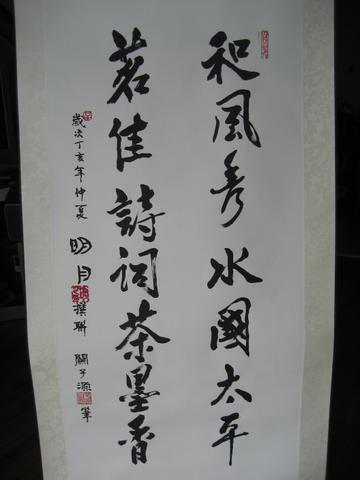 和風秀水國太平
茗佳詩詞茶墨香
歲次丁亥年仲夏
明月撰聯 關子源筆